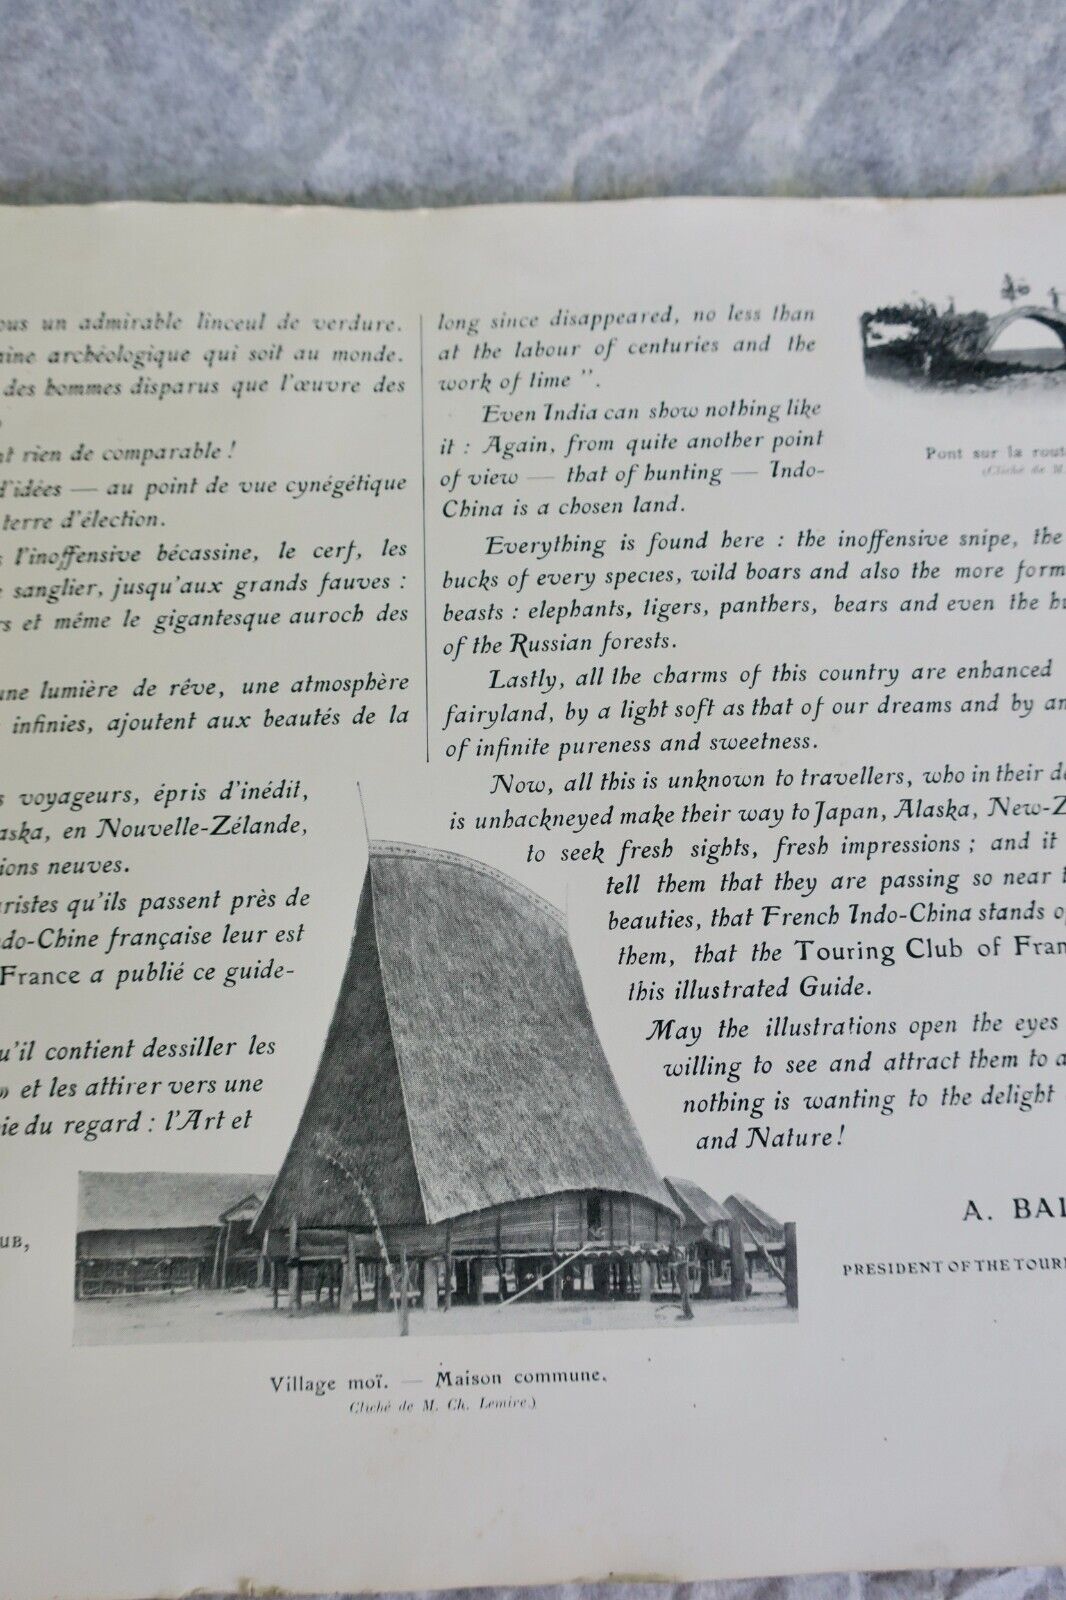 un admirable linceul de verdure.
archéologique qui soit au monde.
des hommes disparus que l'œuvre des
rien de comparable !
d'idées — au point de vue cynégétique
terre d'élection.
l'inoffensive bécassine, le cerf, les
sanglier, jusqu'aux grands fauves :
et même le gigantesque auroch des
une lumière de rêve, une atmosphère
infinies, ajoutent aux beautés de la
voyageurs, épris d'inédit,
en Nouvelle-Zélande,
neuves.
qu'ils passent près de
française leur est
France a publié ce guide-
qu'il contient dessiller les
» et les attirer vers une
du regard : l'Art et
long since disappeared, no less than
at the labour of centuries and the
work of time ".
Even India can show nothing like
it : Again, from quite another point
of view — that of hunting — Indo-
China is a chosen land.
Everything is found here : the inoffensive snipe, the
bucks of every species, wild boars and also the more
beasts : elephants, tigers, panthers, bears and even the
of the Russian forests.
Lastly, all the charms of this country are enhanced
fairyland, by a light soft as that of our dreams and by
of infinite pureness and sweetness.
Now, all this is unknown to travellers, who in their
is unhackneyed make their way to Japan, Alaska,
to seek fresh sights, fresh impressions ; and it
tell them that they are passing so near
beauties, that French Indo-China stands
them, that the Touring Club of
this illustrated Guide.
May the illustrations open the eyes
willing to see and attract them to
nothing is wanting to the delight
and Nature !
A.
PRESIDENT OF THE
Pont sur la
(Cliché de M.
Village moï. — Maison commune.
Cliché de M. Ch. Lemire.)